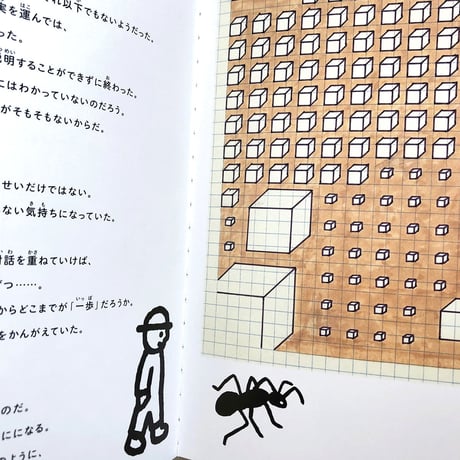 れ以下でもないようだった。
実を運んでは、
った。
説明することができずに終わった。
こはわかっていないのだろう。
がそもそもないからだ。
せいだけではない。
ない気持ちになっていた。
対話を重ねていけば、
ずつ……。
からどこまでが「一歩」だろうか。
をかんがえていた。
のだ。
にになる。
のように、